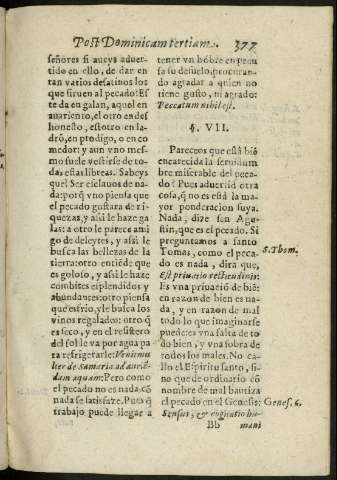 Post Dominicam tertiam. 377
señores si aueys aduer-
tido en ello, de dar en
tan varios desatinos los
que siruen al pecado: Es
te da en galan, aquel en
auariento, el otro en des
honesto, estotro en la-
drõ, en prodigo, o en co
medor: y aun vno mes-
mo suele vestirse de to-
das estas libreas. Sabeys
que? Ser esclauos de na-
da: porq̃ vno piensa que
el pecado gustara de ri-
quezas, y assi le haze ga
las: a otro le parece ami
go de deleytes, y assi le
busca las bellezas de la
tierra: otro entiẽde que
es goloso, y assi le haze
combites esplendidos y
abundantes: otro piensa
que es frio, y le busca los
vinos regalados: otro q̃
es seco, y en el resistero
del sol le va por agua pa
ra refrigerarle: Venit mu
lier de Samaria ad aurie
dam aquam: Pero como
el pecado no es nada, cõ
nada se satisfaze. Pues q̃
trabajo puede llegar a
tener vn hõbre en
sa su desuelo, procuran-
do agradar a quien no
tiene gusto, ni agrado:
Peccatum nihil est.
§. VII.
Pareceos que està biẽ
encarecida la seruidum
bre miserable del peca-
do? Pues aduertid otra
cosa, q̃ no es està la ma
yor ponderacion suya.
Nada, dize san Agu
stin, que es el pecado. Si
preguntamos a santo
Tomas, como el peca-
do es nada, dira que,
Est priuatio rectitudinis:
Es vna priuaciõ de biẽ:
en razon de bien es na-
da, y en razon de mal
todo lo que imaginarse
puede: es vna falta de to
do bien, y vna sobra de
todos los males. No ca-
llo el Espiritu santo, si-
no que de ordinario cõ
nombre de mal bautiza
el pecado en el Genesis:
Sensus, & cogitatio hu-
S. Thom.
Genes. 6.
Bb mani